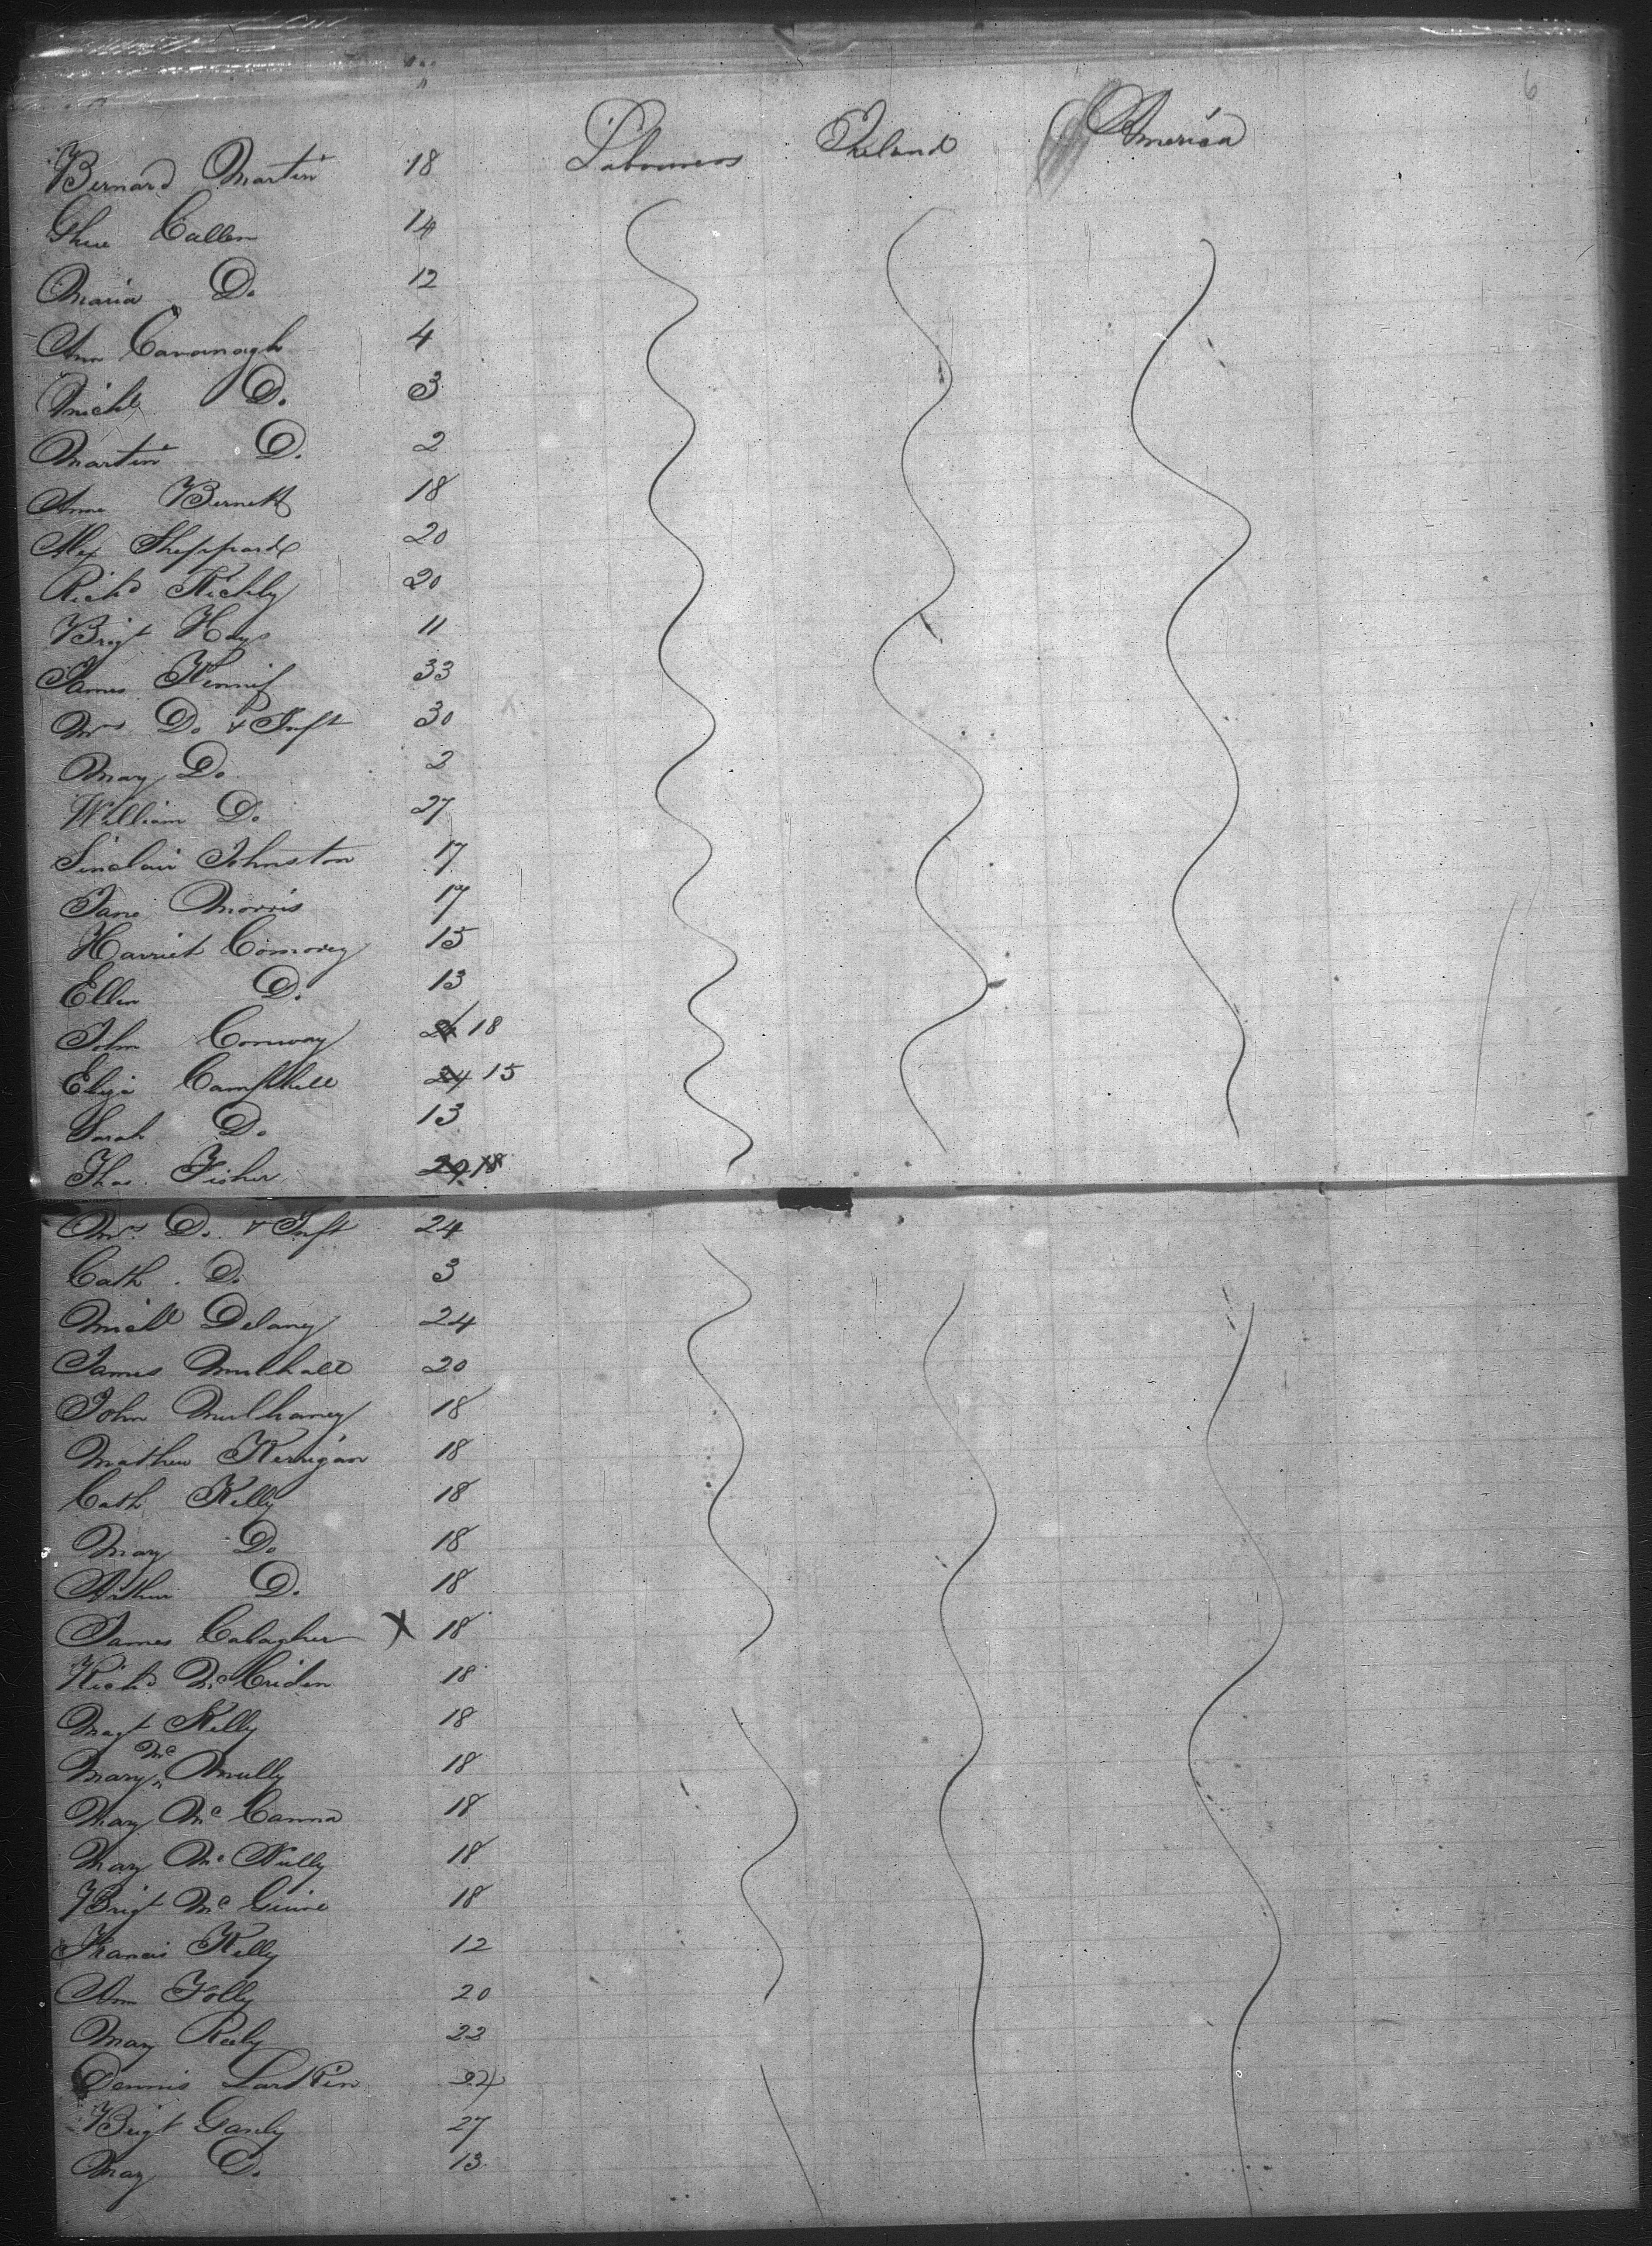 6
Labourers Ireland America
Bernard Martin 18
Cullen 14
Maria Do 12
Ann Cavanagh 4
Michl Do 3
Martin Do 2
Anne Bernett 18
Alex Sheppard 20
Richd Kickly 20
Brigt Hays 11
James Kennif 33
Mrs Do & Inft 30
May Do 2
William Do 27
Sinclair Johnston 17
Jane Morris 17
Harriet Comorey 15
Ellen Do 13
John Conway 24 18
Eliza Campbell 24 15
Sarah Do 13
Thos. Fisher 29 18
Mrs Do & Inft 24
Cath. Do 3
Michl Delany 24
James Mulhall 20
John Mulhaney 18
Mathew Kerrigan 18
Cath Kelly 18
Mary Do 18
Arthur Do 18
James Galagher X 18
Richd McCriden 18
Magt Kelly 18
Mary Mc Mully 18
Mary Mc Canna 18
Mary Mc Nully 18
Brigt Mc Guire 18
Francis Kelly 12
Ann Folly 20
May Reily 22
Dennis Larkin 24
Brigt Ganly 27
May Do 13